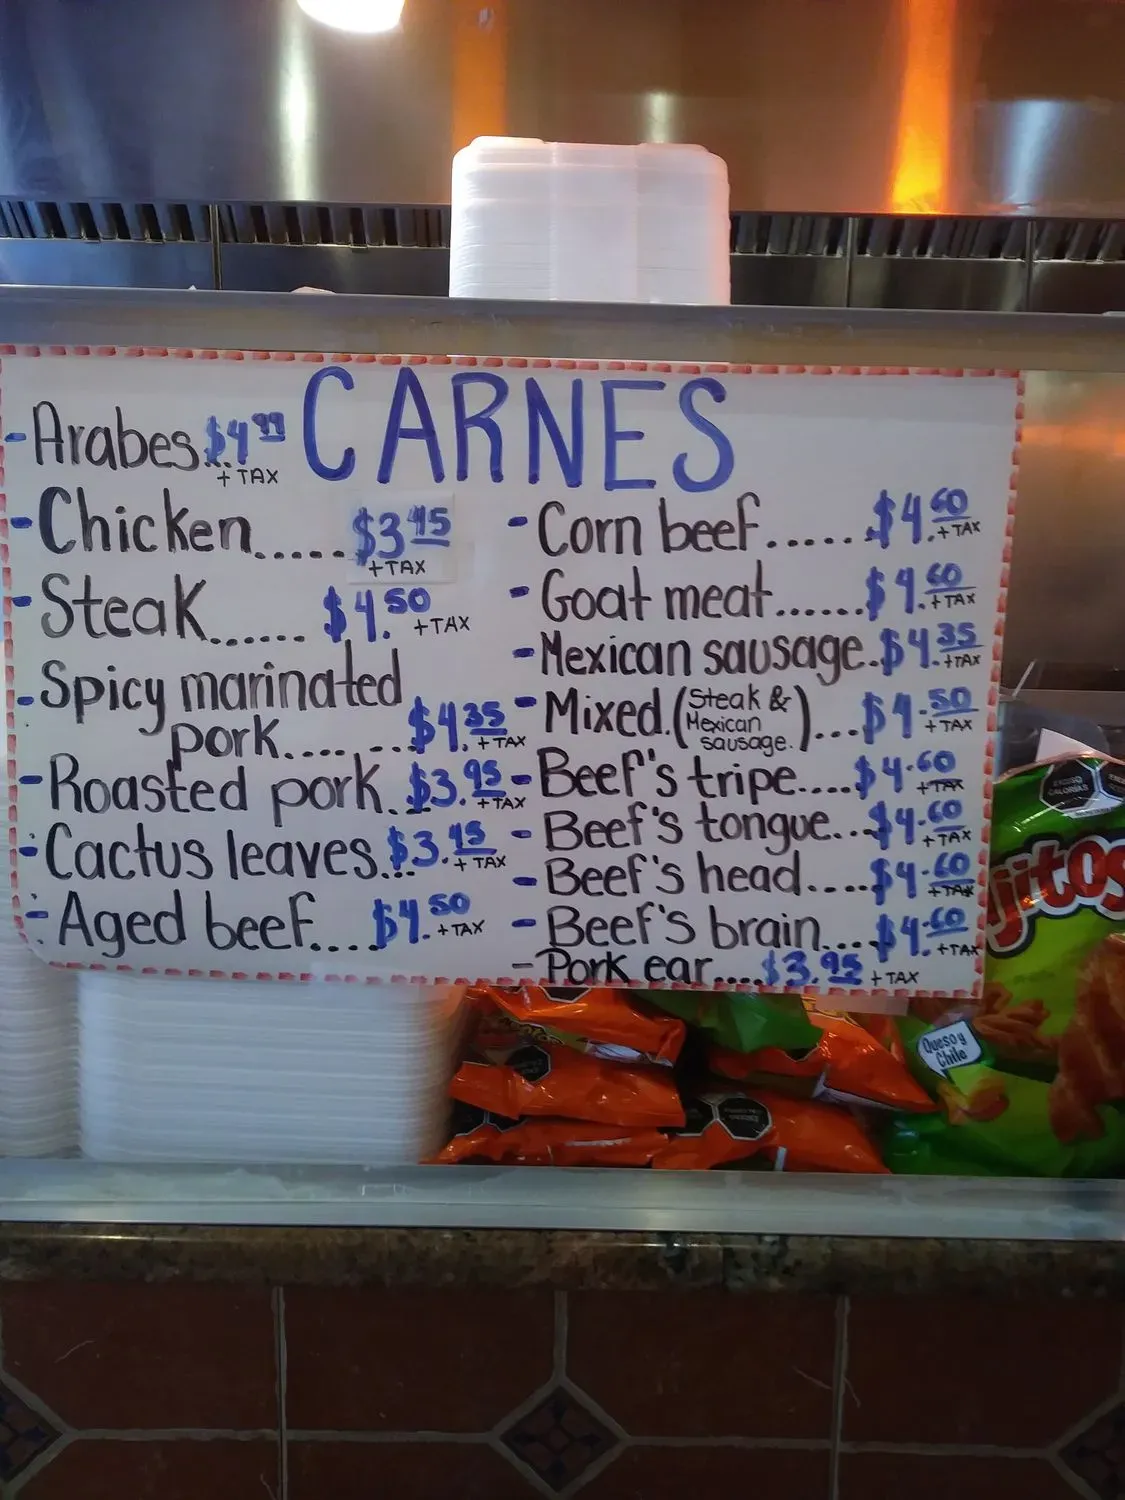 CARNES
-Arabes..$4.99
+TAX
-Chicken.....$3.45
+TAX
-Steak...... $4.50 +TAX
-Spicy marinated
pork.... ...$4.35 +TAX
-Roasted pork.$3.95 +TAX
-Cactus leaves.$3.45 +TAX
-Aged beef....$4.50 +TAX
-Corn beef......$4.60 +TAX
-Goat meat......$4.60 +TAX
-Mexican sausage.$4.35 +TAX
-Mixed.(Steak &
Mexican
sausage.)...$4.50 +TAX
-Beef's tripe....$4.60 +TAX
-Beef's tongue...$4.60 +TAX
-Beef's head....$4.60 +TAX
-Beef's brain....$4.60 +TAX
-Pork ear....$3.95 +TAX
EXCESO
CALORÍAS
jitos
Queso y
Chile